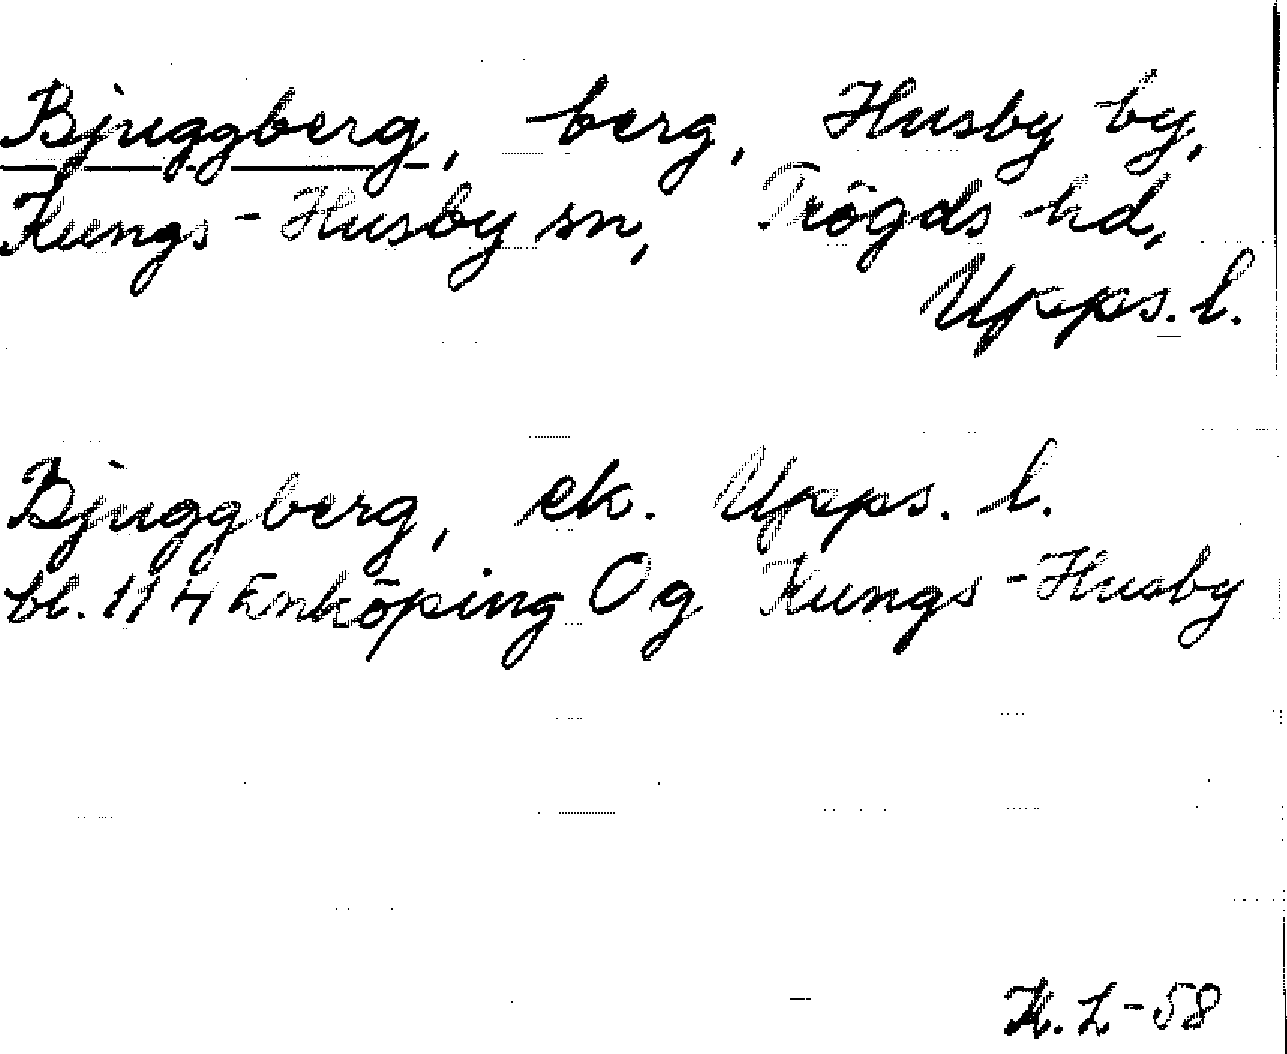 Bjuggberg, berg, Husby by,
Kungs-Husby sn, Trögds hd,
Upps. l.
Bjuggberg, ek. Upps. l.
bl. 114 Enköping Og Kungs-Husby
K. L-58